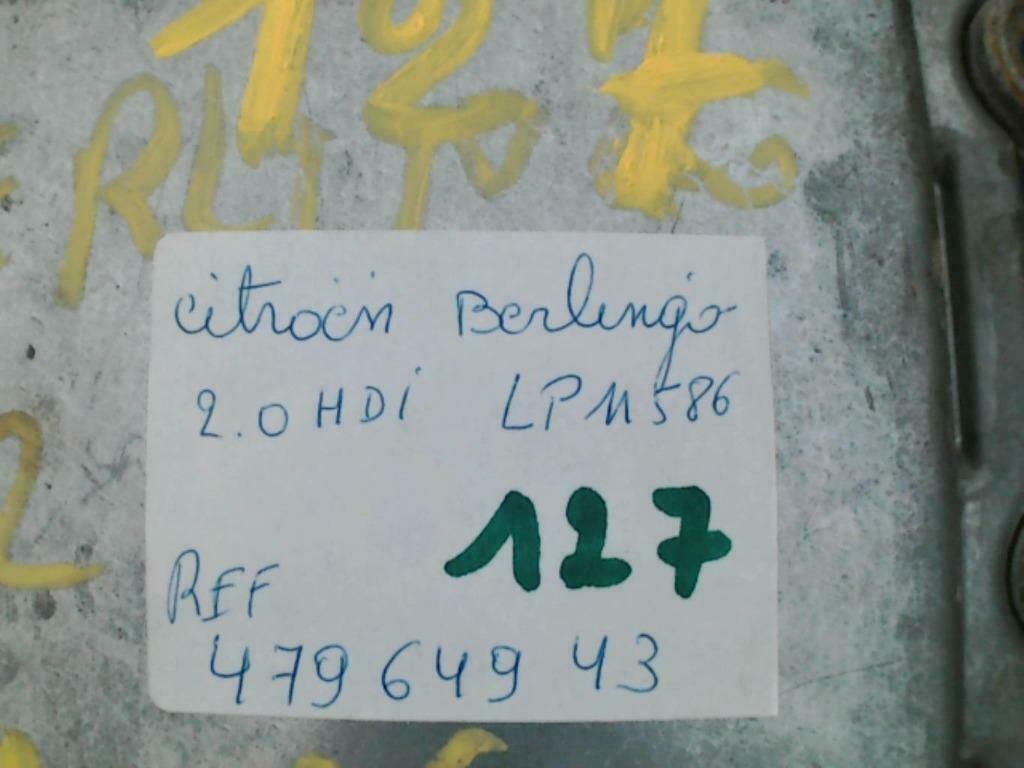 127
citroën Berlingo
2.0 HDi LP11586
127
REF
479 649 43
2